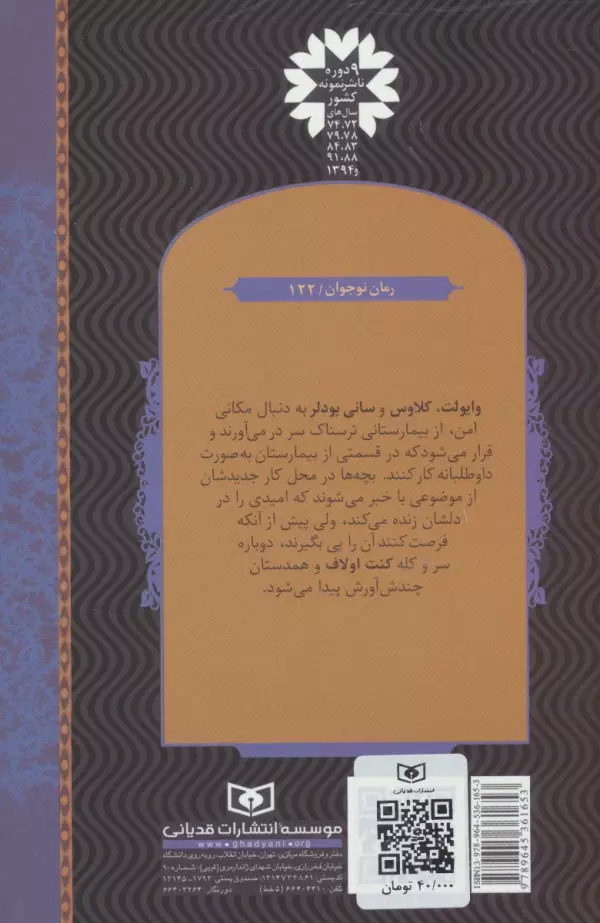 ۹ دوره
ناشر نمونه
کشور
سال‌های
۷۴،۷۲
۷۹،۷۸
۸۴،۸۳
۹۱،۸۸
و ۱۳۹۴
رمان نوجوان / ۱۲۲
وایولت، کلاوس و سانی بودلر به دنبال مکانی
امن، از بیمارستانی ترسناک سر در می‌آورند و
قرار می‌شود که در قسمتی از بیمارستان به‌صورت
داوطلبانه کار کنند. بچه‌ها در محل کار جدیدشان
از موضوعی با خبر می‌شوند که امیدی را در
دلشان زنده می‌کند، ولی پیش از آنکه
فرصت کنند آن را پی بگیرند، دوباره
سر و کله کنت اولاف و همدستان
چندش‌آورش پیدا می‌شود.
موسسهٔ انتشارات قدیانی
www.ghadyani.org
دفتر و فروشگاه مرکزی: تهران، خیابان انقلاب، روبه‌روی دانشگاه
خیابان فخررازی، خیابان شهدای ژاندارمری (غربی)، شماره ۹۰
کد پستی: ۱۳۱۴۷۳۳۸۶۱، صندوق پستی: ۱۷۹۳-۱۳۱۴۵
تلفن: ۶۶۴۰۴۴۱۰ (۵ خط) دورنگار: ۶۶۴۰۳۲۶۴
انتشارات قدیانی
۴۰/۰۰۰ تومان
ISBN13: 978-964-536-165-3
9789645361653